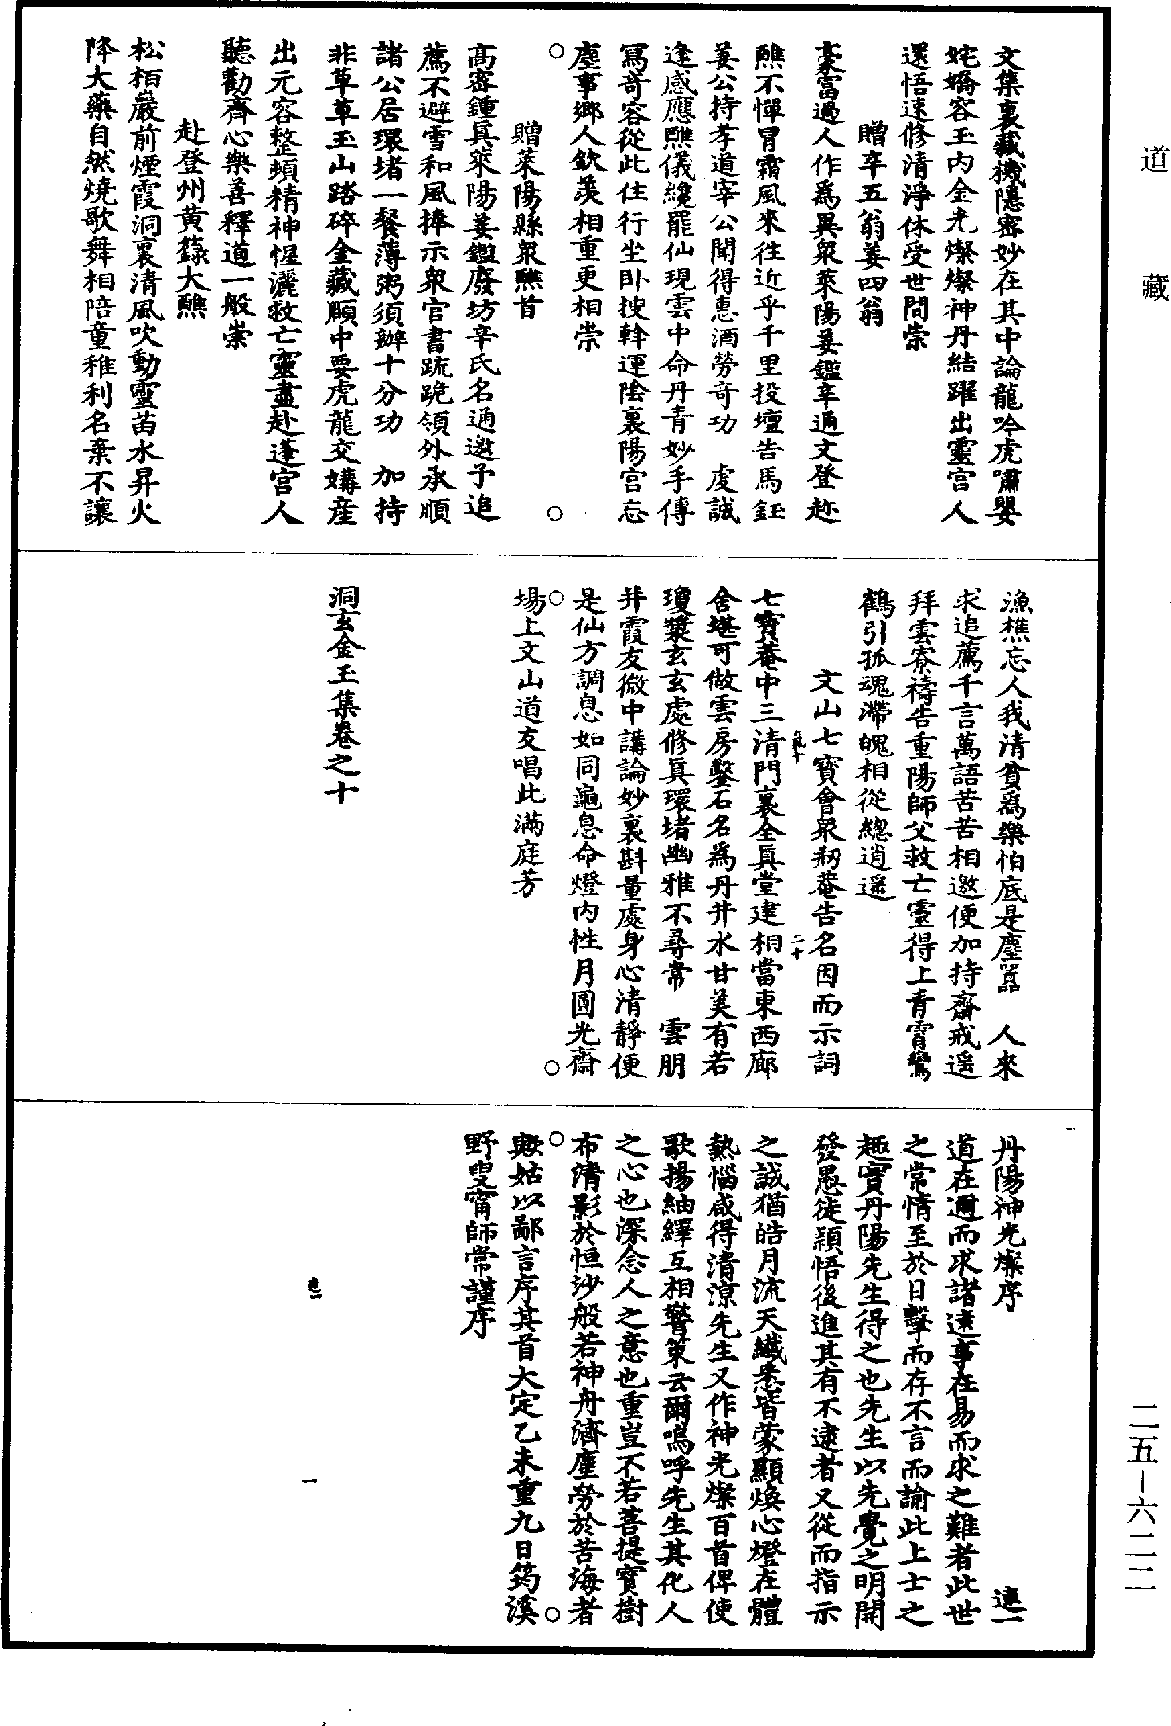 道藏
文集裏藏機隱密妙在其中論龍吟虎嘯嬰
姹嬌容玉內金光燦燦神丹結躍出靈宮人
還悟速修清淨休受世間崇
贈辛五翁姜四翁
豪富過人作爲異衆萊陽姜鑑辛通文登赴
醮不憚冒霜風來往近乎千里投壇告馬鈺
姜公持孝道宰公聞得惠酒勞奇功　虔誠
逢感應醮儀纔罷仙現雲中命丹青妙手傳
寫奇容從此住行坐卧搜斡運陰裏陽宮忘
塵事鄉人欽羨相重更相崇
○　○
贈萊陽縣衆醮首
高密鍾眞萊陽姜鑑廢坊辛氏名通邀予追
薦不避雪和風捧示衆官書䟽跪領外承順
諸公居環堵一餐薄粥須辦十分功　加持
非草草玉山踏碎金藏願中要虎龍交媾產
出元容整頓精神惺灑救亡靈盡赴蓬宮人
聽勸齊心樂善釋道一般崇
赴登州黃籙大醮
松栢巖前煙霞洞裏清風吹動靈苗水昇火
降大藥自然燒歌舞相陪童稚利名棄不讓
漁樵忘人我清貧爲樂怕底是塵囂　人來
求追薦千言萬語苦苦相邀便加持齋戒遥
拜雲寮禱告重陽師父救亡靈得上青霄鸞
鶴引孤魂滯魄相從總逍遥
文山七寶會衆剏菴告名因而示詞
七寶菴中三清門裏全眞堂建相當東西廊
舍堪可做雲房鑿石名爲丹井水甘美有若
瓊漿玄玄處修眞環堵幽雅不尋常　雲朋
并霞友微中講論妙裏斟量處身心清靜便
是仙方調息如同龜息命燈內性月圓光齋
○　○
場上文山道友唱此滿庭芳
洞玄金玉集卷之十
丹陽神光燦序　連一
道在邇而求諸遠事在易而求之難者此世
之常情至於目擊而存不言而諭此上士之
趣實丹陽先生得之也先生以先覺之明開
發愚徒穎悟後進其有不逮者又從而指示
之誠猶皓月流天纖悉皆蒙顯煥心燈在體
熱惱咸得清涼先生又作神光燦百首俾使
歌揚紬繹互相警策云爾嗚呼先生其化人
之心也深念人之意也重豈不若菩提寶樹
布清影於恒沙般若神舟濟塵勞於苦海者
○　○
歟姑以鄙言序其首大定乙未重九日筠溪
野叟甯師常謹序
一
二五—六二二